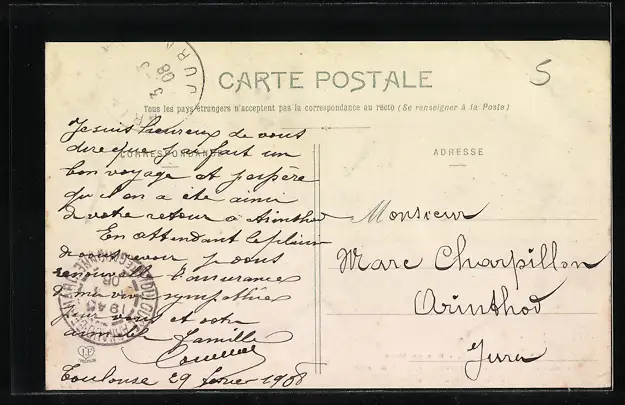 CARTE POSTALE
5
Tous les pays étrangers n'acceptent pas la correspondance au recto (Se renseigner à la Poste)
CORRESPONDANCE
ADRESSE
Je suis heureux de vous
dire que j'ai fait un
bon voyage et j'espère
qu'il en a été ainsi
de votre retour à Arinthod
En attendant le plaisir
de vous revoir je vous
renouvelle l'assurance
de ma vive sympathie
pour vous et votre
aimable famille
Toulouse 29 février 1908
Monsieur
Marc Charpillon
Arinthod
Jura
JURA
08